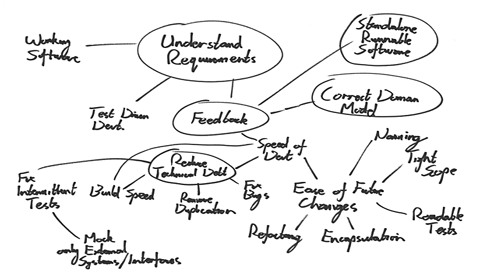 Working
Software
Understand
Requirements
Standalone
Runnable
Software
Test Driven
Devt.
Feedback
Correct Domain
Model
Speed of
Devt
Naming
Tight
Scope
Fix
Intermittent
Tests
Build Speed
Reduce
Technical Debt
Remove
Duplication
Fix
Bugs
Ease of Future
Changes
Readable
Tests
Refactoring
Encapsulation
Mock
only External
Systems/Interfaces